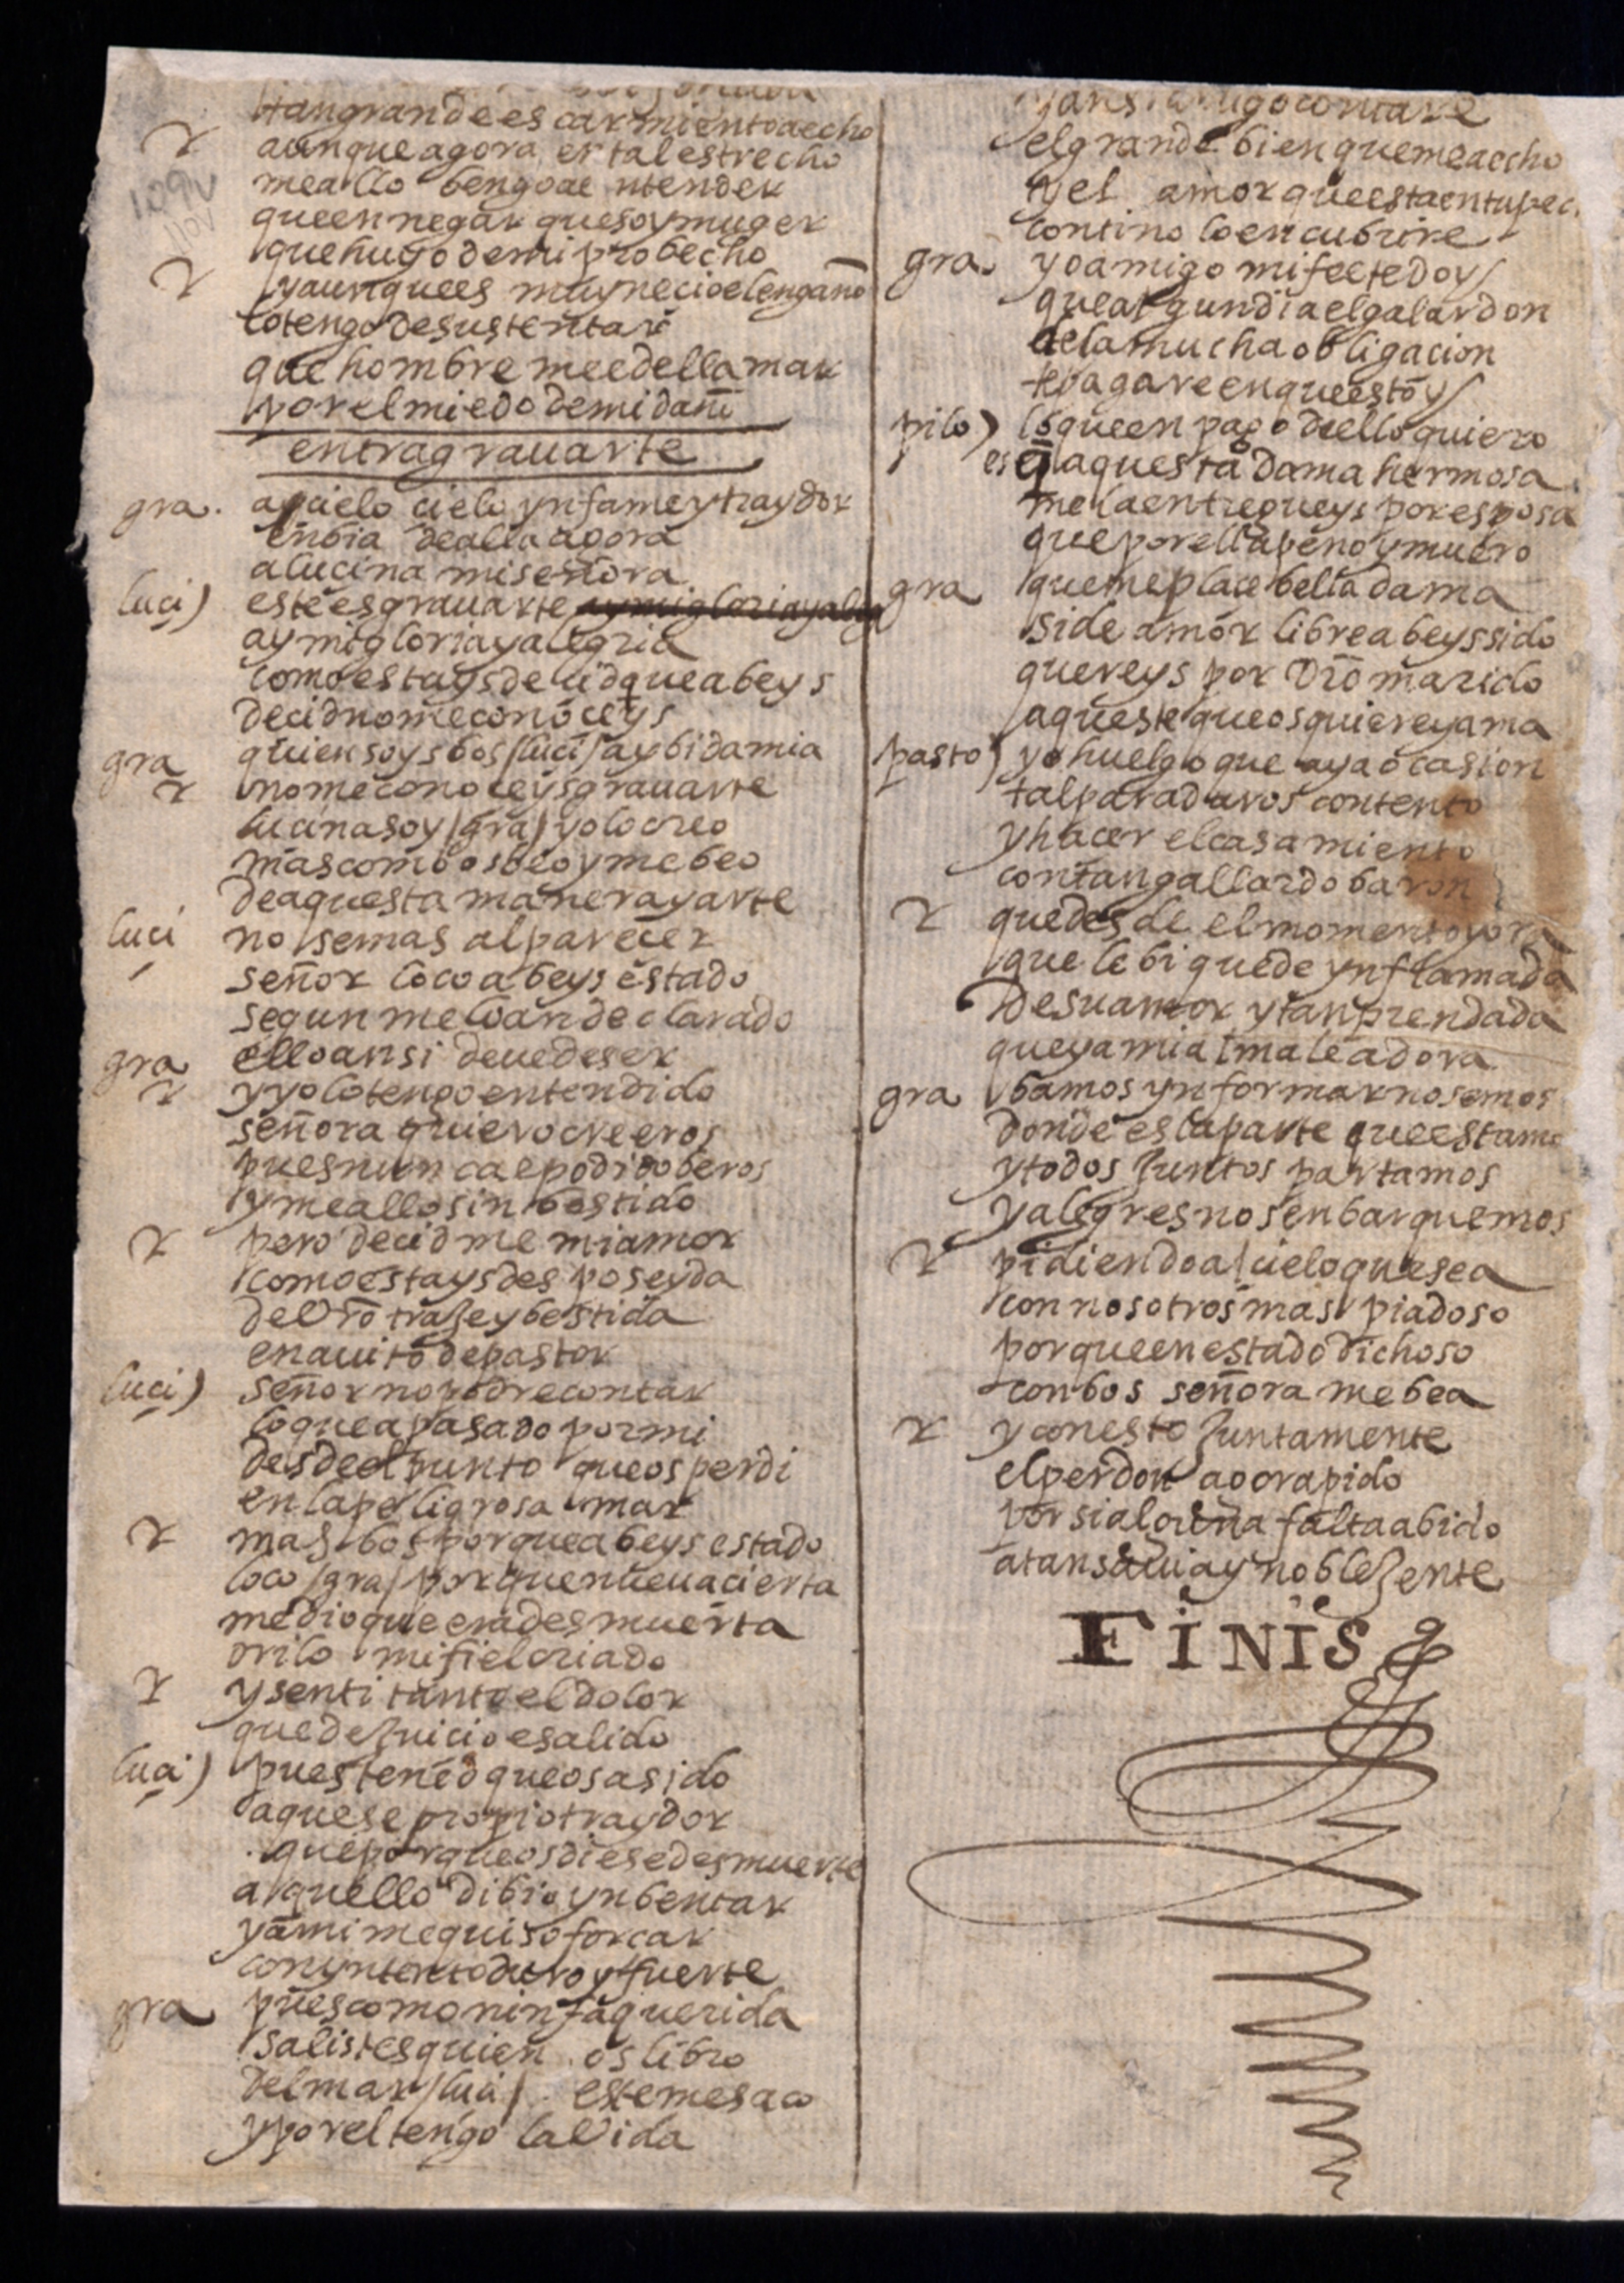 tan grande escarmiento a echo
r aunque agora en tal estrecho
me allo bengo a entender
que en negar que soy muger
que huyo de mi probecho
r y aunque es muy necio el engaño
lo tengo de sustentar
que hombre me e de llamar
por el miedo de mi daño
entra grauarte
gra. a cielo cielo ynfame y traydor
enbia de alla agora
a lucina mi señora
luci) este es grauarte ay mi gloria y aleg
ay mi gloria y alegria
como estays de lo que abeys
decid no me conoceys
gra quien soys bos / luci / ay bida mia
r no me conoceys grauarte
lucina soy / gra / yo lo creo
mas como os beo y me beo
de aquesta manera y arte
luci no se mas al parecer
señor loco abeys estado
segun me lo an declarado
gra ello ansi deue de ser
r y yo lo tengo entendido
señora quiero creeros
pues nunca e podido beros
y me allo sin bestido
r pero decidme mi amor
como estays desposeyda
del vro traje y bestida
en auito de pastor
luci) señor no podre contar
lo que a pasado por mi
desde el punto que os perdi
en la peligrosa mar
r mas bos porque abeys estado
loco / gra / por que nueua cierta
me dio que erades muerta
orilo mi fiel criado
r y senti tanto el dolor
que de juicio e salido
luci) pues tened que os a sido
aquese propio traydor
que porque os diesedes muerte
aquello dibio ynbentar
y a mi me quiso forcar
con yntento duro y fuerte
gra pues como ninfa querida
salistes quien os libro
del mar / luci / este me saco
y por el tengo la vida
y ansi amigo contare
el grande bien que me a echo
y el amor que esta en tu pec
contino lo encubrire
gra. yo amigo mi fee te doy /
que algun dia el galardon
de la mucha obligacion
te pagare en que estoy /
pilo) lo que en pago de ello quiero
es q̄ aquesta dama hermosa
me la entregueys por esposa
que por ella peno y muero
gra que me place bella dama
si de amor libre abeys sido
quereys por vro marido
aqueste que os quiere y ama
pasto) yo huelgo que aya ocasion
tal para daros contento
y hacer el casamiento
con tan gallardo baron
r que desde el momento y ora
que le bi quede ynflamada
de su amor y tan prendada
que ya mi alma le adora
gra bamos ynformarnos emos
donde es la parte que estamo
y todos juntos partamos
y alegres nos enbarquemos
r pidiendo al cielo que sea
con nosotros mas piadoso
porque en estado dichoso
con bos señora me bea
r y con esto juntamente
el perdon agora pido
por si alguna falta abido
a tan sauia y noble jente
FINIS